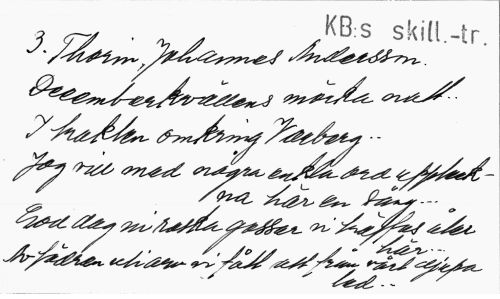 KB:s skill.-tr.
3. Thorin, Johannes Andersson.
Decemberkvällens mörka natt..
I trakten omkring Varberg..
Jag vill med några enkla ord uppteck-
na här en sång...
God dag ni raska gossar vi träffas åter
här...
Av fädren vi fått att från vårt djupa
led...